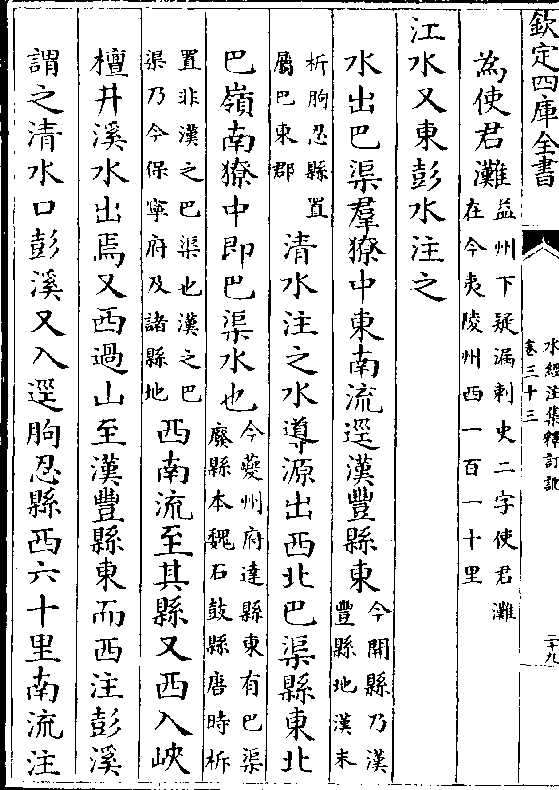 欽定四庫全書
水經注集釋訂訛
卷三十三
二十九
為使君灘益州下疑漏刺史二字使君灘
在今夷陵州西一百一十里
江水又東彭水注之
水出巴渠羣獠中東南流逕漢豐縣東今開縣乃漢
豐縣地漢末
析朐忍縣置
屬巴東郡清水注之水導源出西北巴渠縣東北
巴嶺南獠中即巴渠水也今夔州府達縣東有巴渠
廢縣本魏石鼓縣唐時析
置非漢之巴渠也漢之巴
渠乃今保寧府及諸縣地西南流至其縣又西入峽
檀井溪水出焉又西過山至漢豐縣東而西注彭溪
謂之清水口彭溪又入逕朐忍縣西六十里南流注